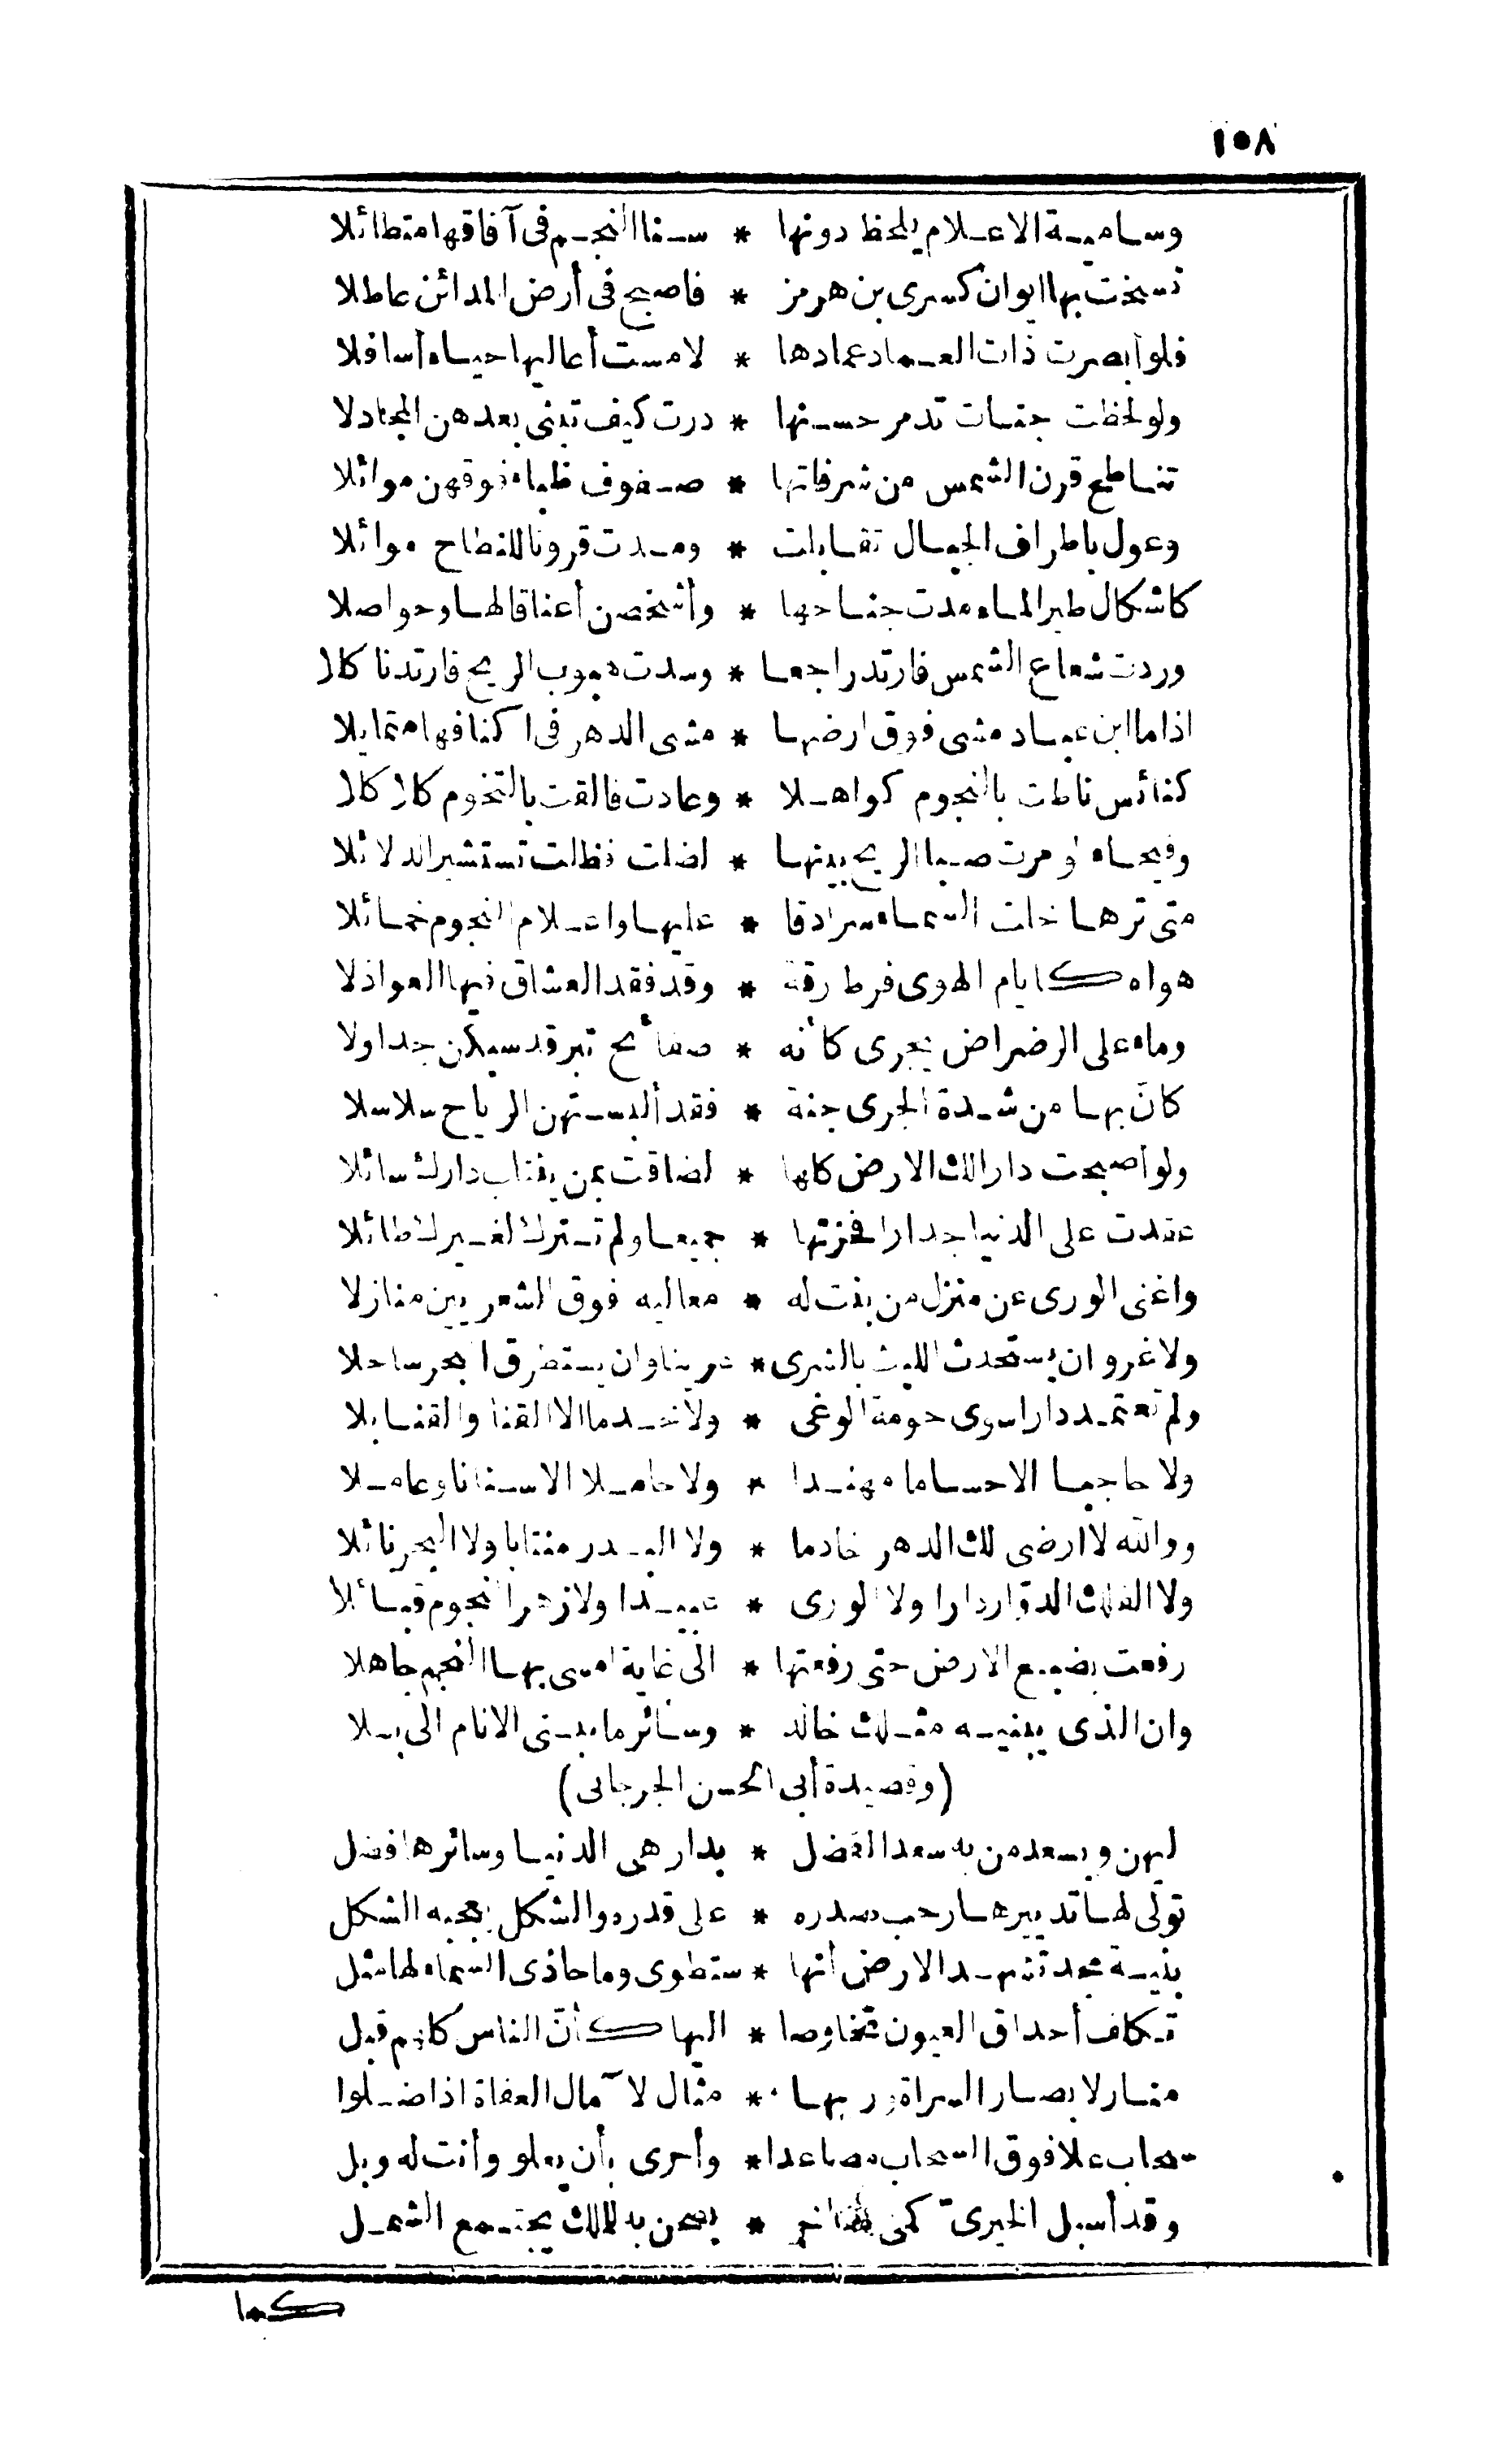 ١٥٨
وسامية الاعلام يلحظ دونها * سنا النجم فى آفاقها متطائلا
نسخت بها ايوان كسرى بن هرمز * فاصبح فى أرض المدائن عاطلا
فلو أبصرت ذات العماد عمادها * لامست أعاليها حياء أسافلا
ولو لحظت جنات تدمر حسنها * درت كيف تبنى بعدهن المجادلا
تناطح قرن الشمس من شرفاتها * صفوف ظباء فوقهن مواثلا
وعول باطراف الجبال تقابلت * ومدت قرونا للنطاح موائلا
كاشكال طير الماء مدت جناحها * وأشخصن أعناقا لها وحواصلا
وردت شعاع الشمس فارتد راجعا * وسدت هبوب الريح فارتد نا كلا
اذا ما ابن عباد مشى فوق ارضها * مشى الدهر فى اكنافها متمايلا
كنائس ناطت بالنجوم كواهلا * وعادت فالقت بالتخوم كلا كلا
وفيحاء لو مرت صبا الريح بينها * لضلت فظلت تستشير الدلائلا
متى ترها خلت السماء سرادقا * عليها واعلام النجوم خمائلا
هواء كايام الهوى فرط رقة * وقد فقد العشاق فيها العواذلا
وماء على الرضراض يجرى كأنه * صفائح تبر قد سبكن جداولا
كانّ بها من شدة الجرى جنة * فقد ألبستهن الرياح سلاسلا
ولو أصبحت دارا لك الارض كلها * لضاقت بمن ينتاب دارك سائلا
عقدت على الدنيا جدارا فحزتها * جميعا ولم تترك لغيرك طائلا
واغنى الورى عن منزل من بنت له * معاليه فوق الشعريين منازلا
ولا غرو ان يستحدث الليث بالشرى * عرينا وان يستطرق البحر ساحلا
ولم تعتمد دارا سوى حومة الوغى * ولا خدما الا القنا والقنابلا
ولا حاجبا الا حساما مهندا * ولا حاملا الا سنانا وعاملا
ووالله لا ارضى لك الدهر خادما * ولا البدر منتابا ولا البحر نائلا
ولا الفلك الدوّار دارا ولا الورى * عبيدا ولا زهر النجوم قبائلا
رفعت بضبع الارض حتى رفعتها * الى غاية امسى بها النجم جاهلا
وان الذى يبنيه مثلك خالد * وسائر ما يبنى الانام الى بلا
(وقصيدة أبى الحسن الجرجانى)
ليهن ويسعد من به سعد الفضل * بدار هى الدنيا وسائرها فضل
تولى لها تدبيرها رحب صدره * على قدره والشكل يعجبه الشكل
بنية مجد تشهد الارض أنها * ستطوى وما حاذى السماء لها مثل
تكلف أحداق العيون تخاوصا * اليها كأنّ الناس كلهم قبل
منار لابصار السراة وربها * مثال لآمال العفاة اذا ضلوا
سحاب علا فوق السحاب مصاعدا * وأحرى بأن يعلو وأنت له وبل
وقد أسبل الخيرىّ كمى * بصحن به للملك يجتمع الشمل
كما